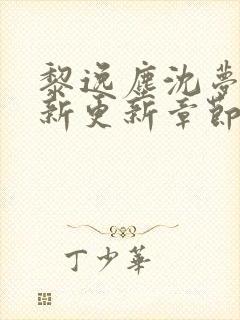 黎逸塵沈夢
新更新章節
丁少華